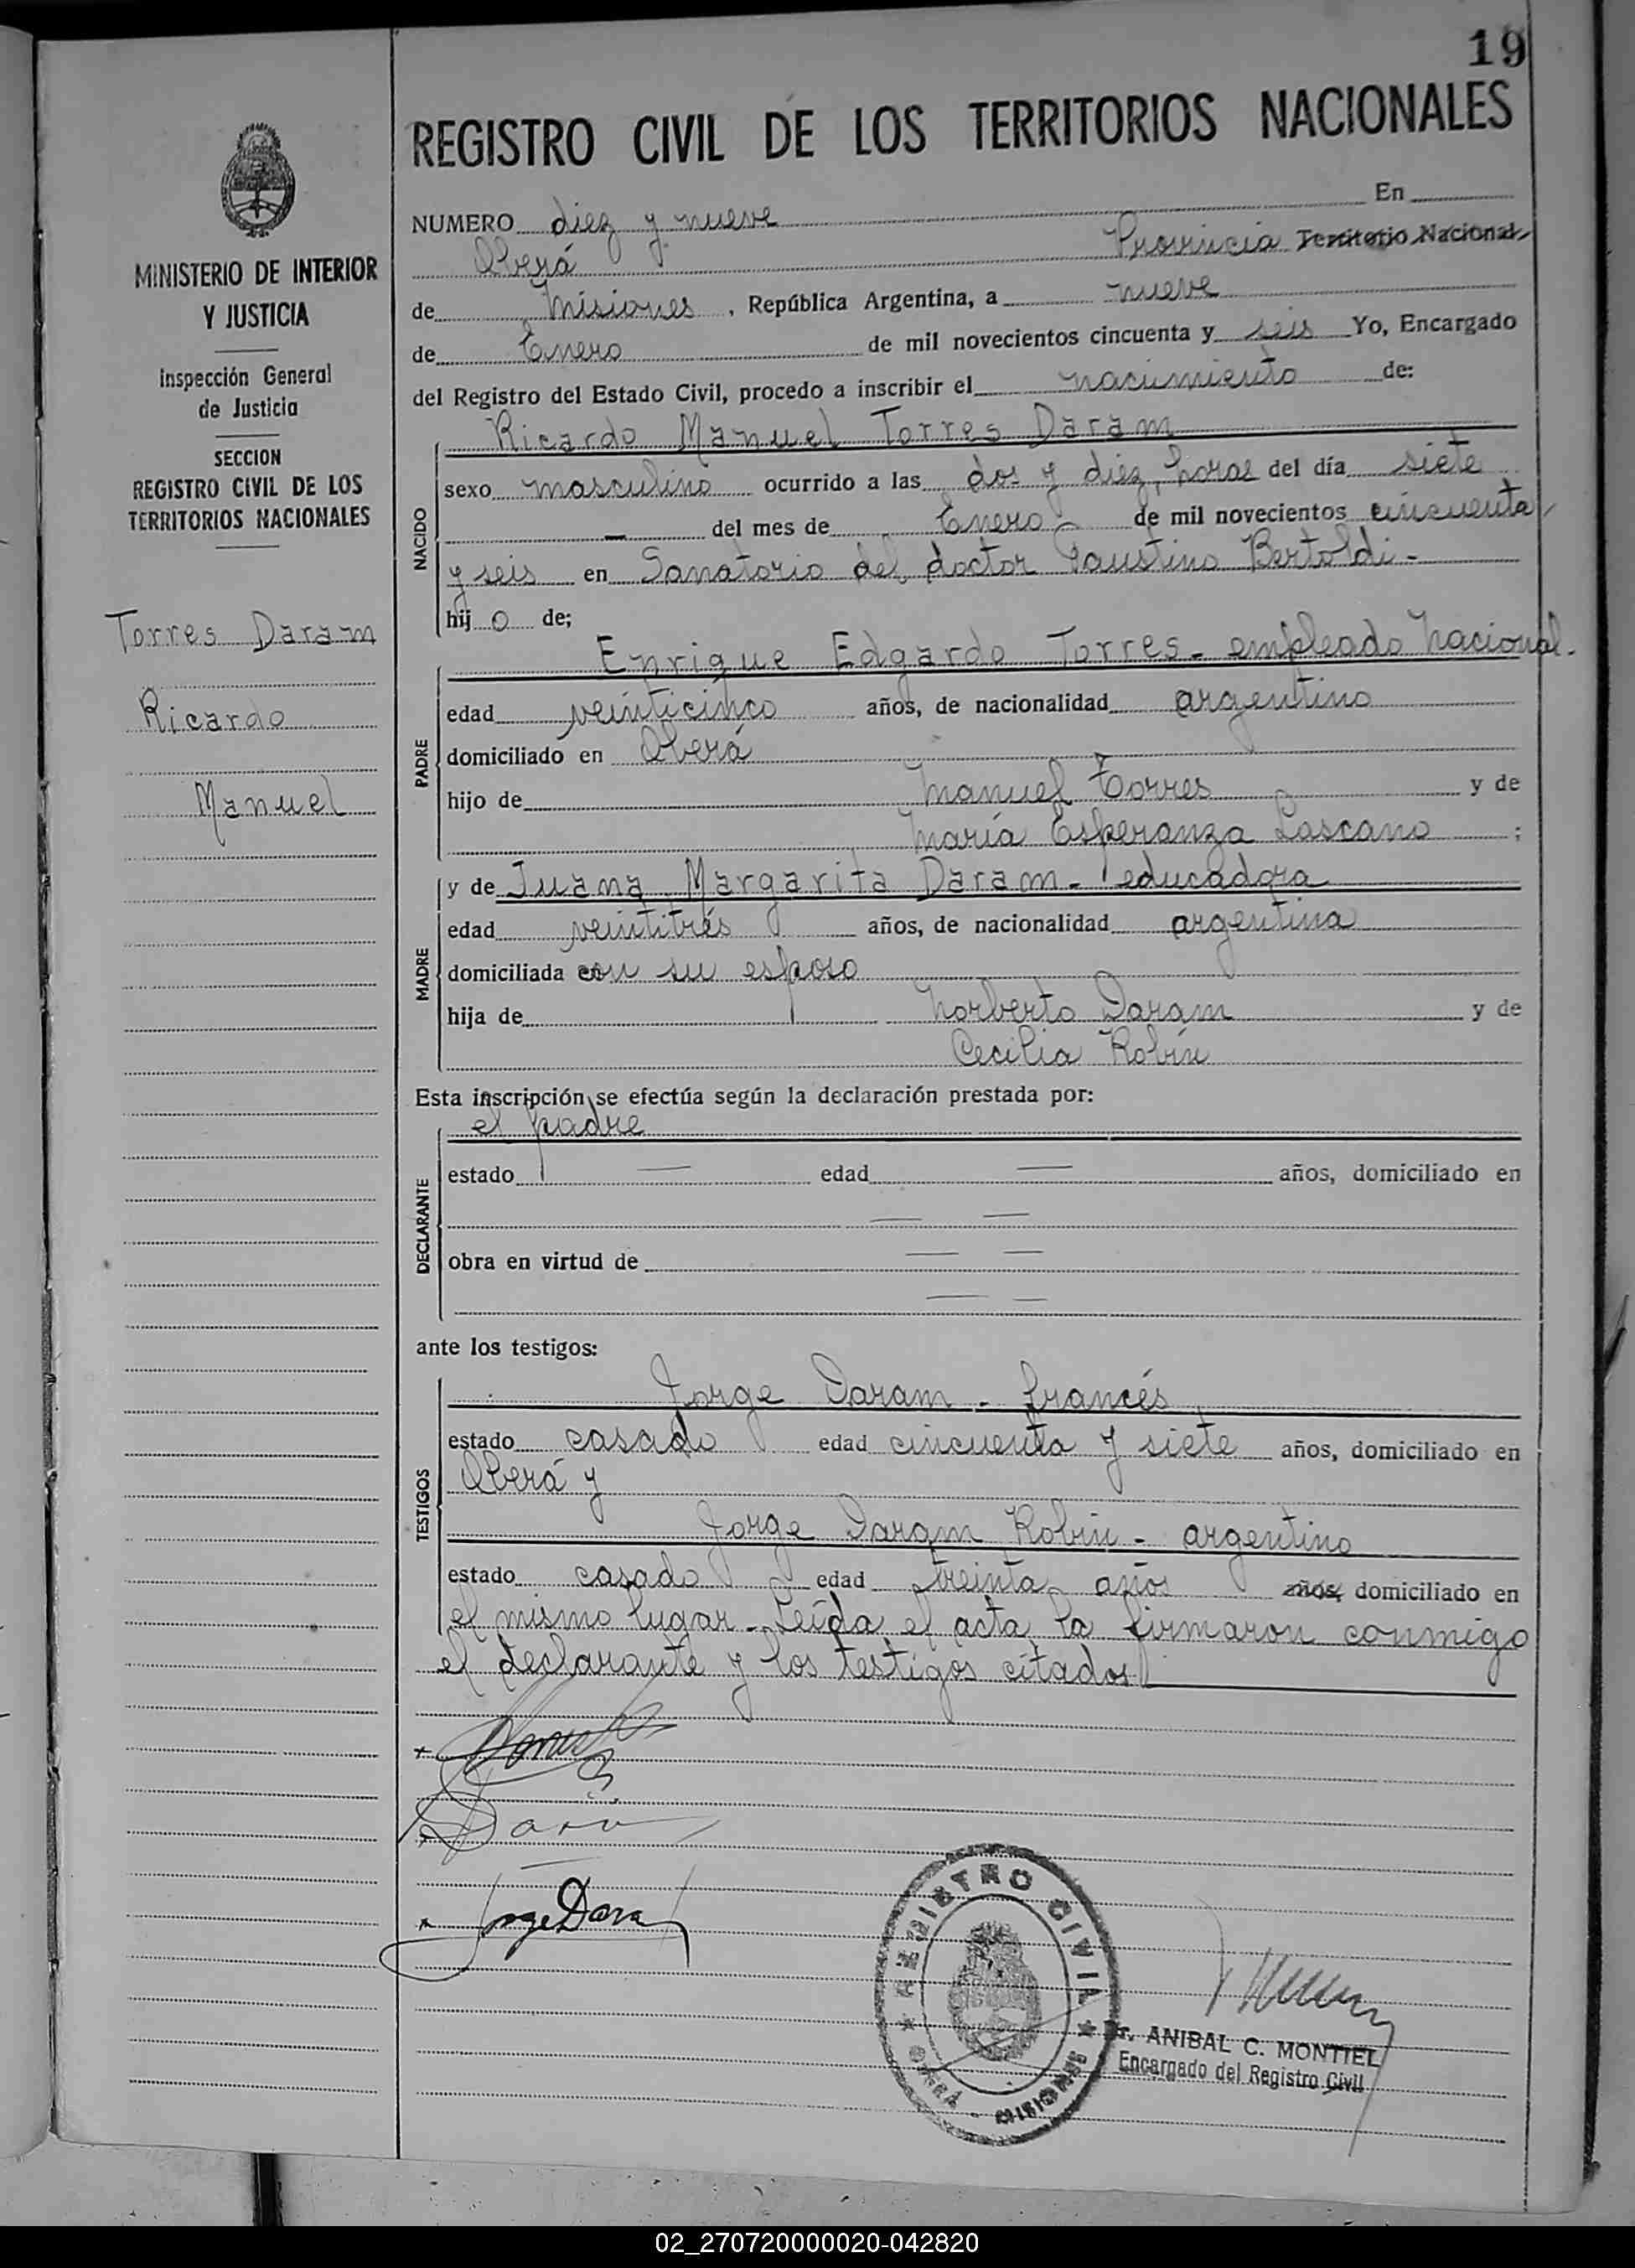 19
REGISTRO CIVIL DE LOS TERRITORIOS NACIONALES
MINISTERIO DE INTERIOR
Y JUSTICIA
Inspección General
de Justicia
SECCION
REGISTRO CIVIL DE LOS
TERRITORIOS NACIONALES
Torres Daram
Ricardo
Manuel
NUMERO diez y nueve En
Oberá Provincia Territorio Nacional
de Misiones, República Argentina, a nueve
de Enero de mil novecientos cincuenta y seis Yo, Encargado
del Registro del Estado Civil, procedo a inscribir el nacimiento de:
NACIDO
Ricardo Manuel Torres Daram
sexo masculino ocurrido a las dos y diez, horas del día siete
— del mes de Enero - de mil novecientos cincuenta
y seis en Sanatorio del doctor Faustino Bertoldi -
hij o de;
PADRE
Enrique Edgardo Torres - empleado nacional.
edad veinticinco años, de nacionalidad argentino
domiciliado en Oberá
hijo de Manuel Torres y de
María Esperanza Lascano ;
MADRE
y de Juana Margarita Daram - educadora
edad veintitrés años, de nacionalidad argentina
domiciliada con su esposo
hija de Norberto Daram y de
Cecilia Robin
Esta inscripción se efectúa según la declaración prestada por:
DECLARANTE
el padre
estado — edad — años, domiciliado en
— —
obra en virtud de — —
— —
ante los testigos:
TESTIGOS
Jorge Daram - francés
estado casado edad cincuenta y siete años, domiciliado en
Oberá y
Jorge Daram Robin - argentino
estado casado edad treinta años años, domiciliado en
el mismo lugar - Leída el acta la firmaron conmigo
el declarante y los testigos citados
Jorge Daram
REGISTRO CIVIL
OBERÁ - MISIONES
Sr. ANIBAL C. MONTIEL
Encargado del Registro Civil
02_270720000020-042820